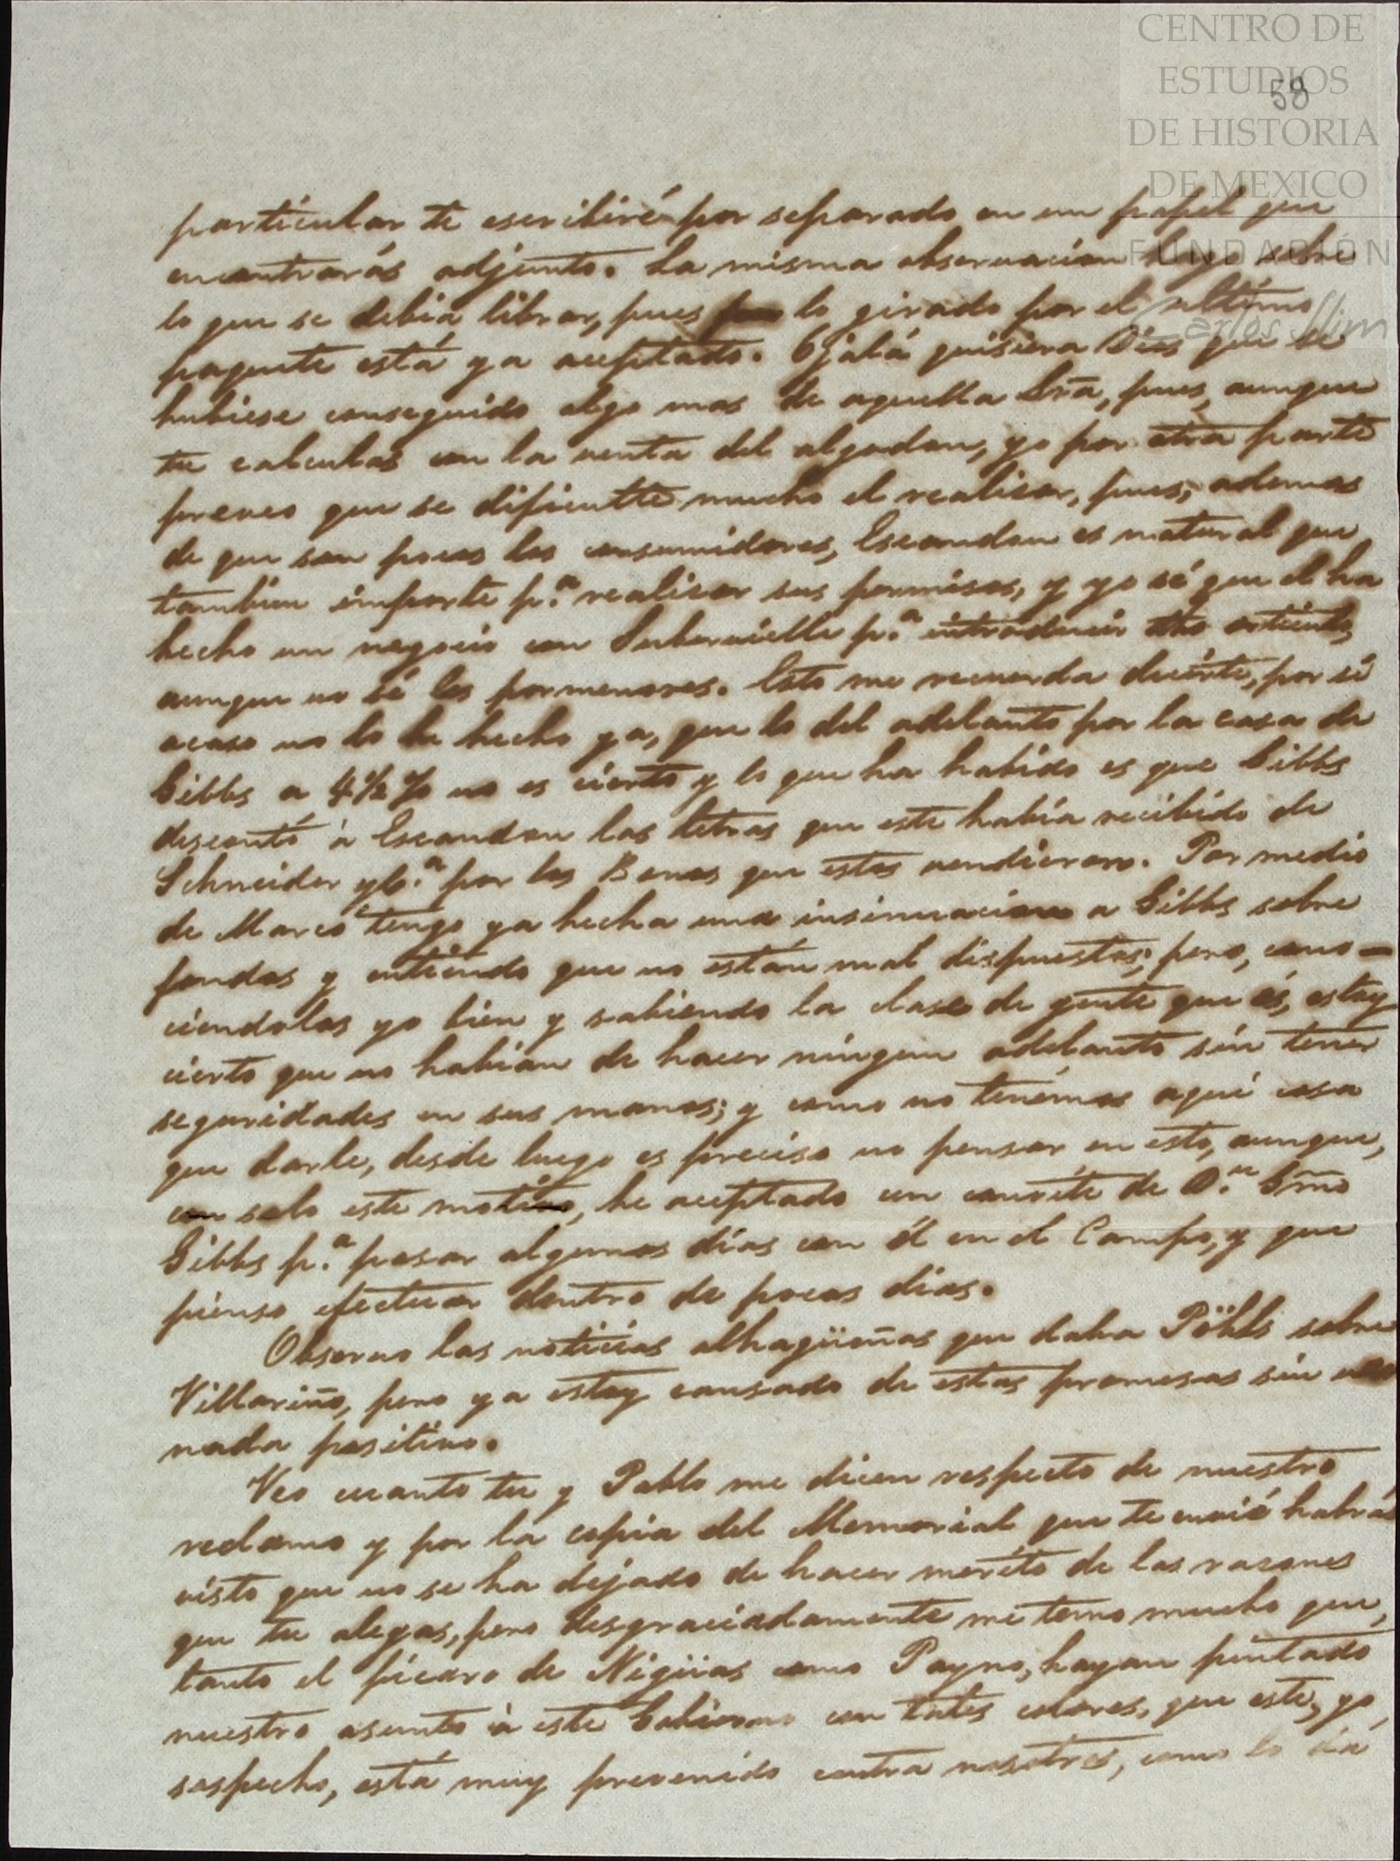 CENTRO DE
ESTUDIOS
DE HISTORIA
DE MEXICO
FUNDACIÓN
Carlos Slim
58
particular te escribiré por separado en un papel que
encontrarás adjunto. La misma observacion hago sobre
lo que se debia librar, pues lo girado por el ultimo
paquete está ya aceptado. Ojalá quisiera Dios que se
hubiese conseguido algo mas de aquella Sra, pues, aunque
tu calculas con la venta del algodon, yo por otra parte
preveo que se dificulte mucho el realizar, pues, ademas
de que son pocos los consumidores, Escandon es natural que
tambien importe p.a realizar sus permisos, y yo sé que el ha
hecho un negocio con Subervielle p.a introducir dho articulo,
aunque no sé los pormenores. Esto me recuerda decirte, por si
acaso no lo he hecho ya, que lo del adelanto por la casa de
Gibbs a 4½ % no es cierto y lo que ha habido es que Gibbs
descontó à Escandon las letras que este había recibido de
Schneider y C.a por los Bonos que estos vendieron. Por medio
de Marcó tengo ya hecha una insinuacion a Gibbs sobre
fondos y entiendo que no están mal dispuestos; pero, cono-
ciendolos yo bien y sabiendo la clase de gente que és, estoy
cierto que no habían de hacer ningun adelanto sin tener
seguridades en sus manos; y como no tenémos aquí cosa
que darle, desde luego es preciso no pensar en esto, aunque,
con solo este motivo, he aceptado un convite de D.n Gmo
Gibbs p.a pasar algunos días con él en el Campo, y que
pienso efectuar dentro de pocos dias.
Observo las noticias alhagüeñas que daba Pöhls sobre
Villariño, pero ya estoy cansado de estas promesas sin
nada positivo.
Veo cuanto tu y Pablo me dicen respecto de nuestro
reclamo y por la copia del Memorial que te envié habrás
visto que no se ha dejado de hacer mérito de las razones
que tu alegas, pero desgraciadamente me temo mucho que,
tanto el pícaro de Nigüas como Payno, hayan pintado
nuestro asunto à este Gobierno con tales colores, que este, yo
sospecho, está muy prevenido contra nosotros, como lo dá